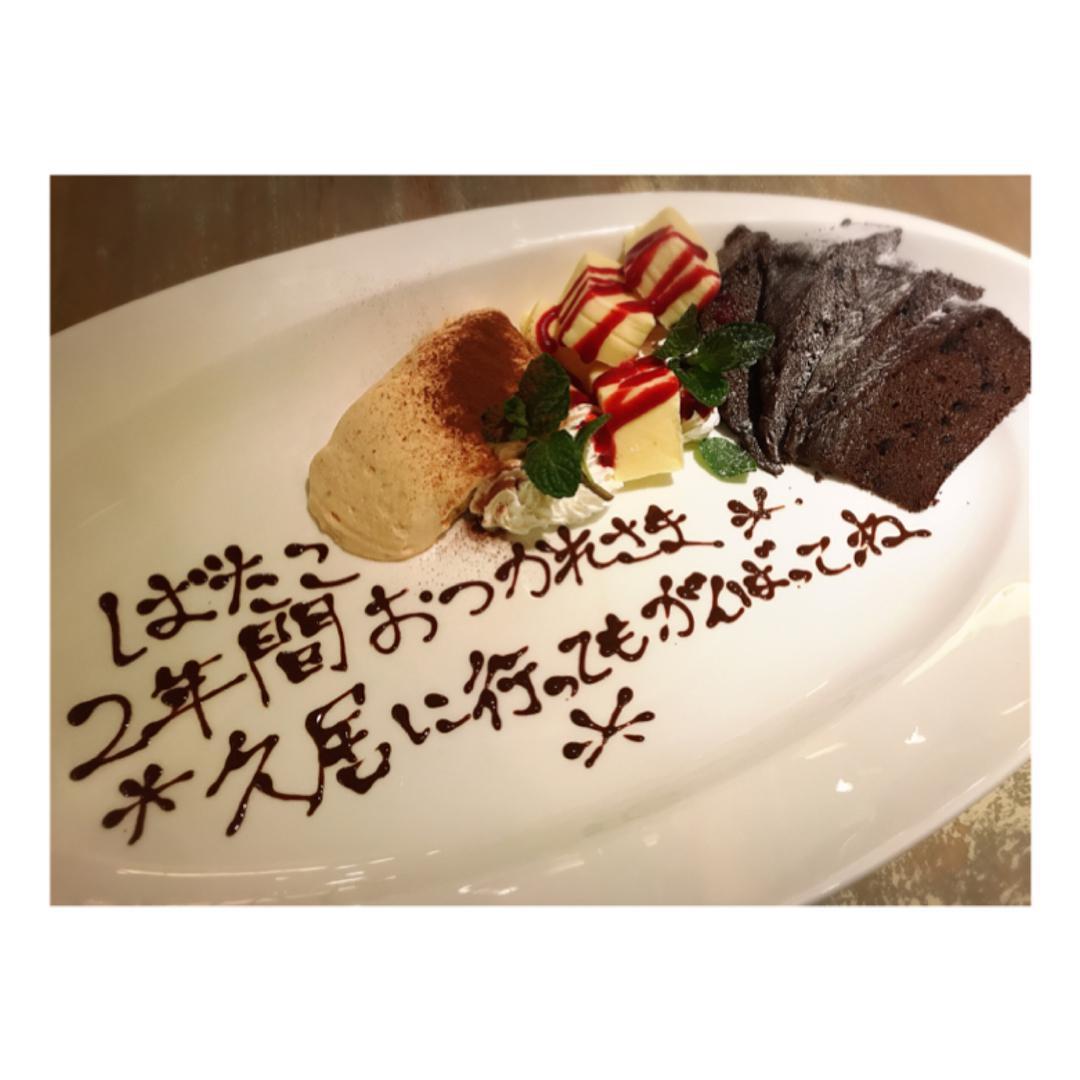 しばたこ
2年間おつかれさま*
*久居に行ってもがんばってね*